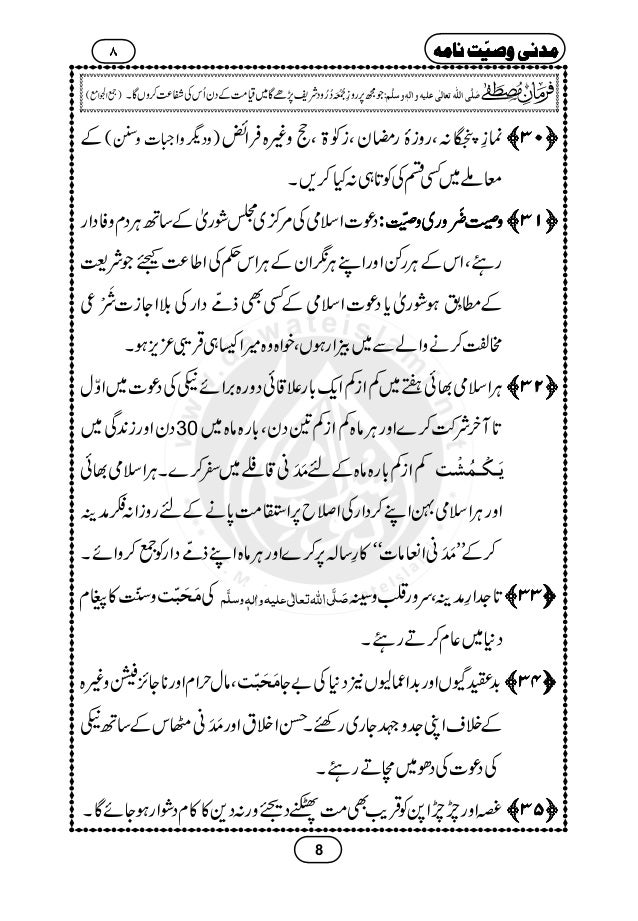 مدنی وصیّت نامہ
۸
فرمانِ مصطفےٰ صَلَّی اللہ تعالٰی علیہ واٰلہٖ وسلَّم: جو مجھ پر روزِ جُمُعَہ دُرُود شریف پڑھے گا میں قیامت کے دن اُس کی شفاعت کروں گا۔ (جمع الجوامع)
﴿۳۰﴾ نمازِ پنجگانہ، روزۂ رمضان، زکوٰۃ، حج وغیرہ فرائض (و دیگر واجبات وسنن) کے
معاملے میں کسی قسم کی کوتاہی نہ کیا کریں۔
﴿۳۱﴾ وصیت ضَروری وصیّت: دعوتِ اسلامی کی مرکزی مجلسِ شوریٰ کے ساتھ ہر دم وفادار
رہئے، اس کے ہر رکن اور اپنے ہر نگران کے ہر اس حکم کی اطاعت کیجئے جو شریعت
کے مطابق ہو شوریٰ یا دعوتِ اسلامی کے کسی بھی ذمے دار کی بلا اجازتِ شَرْعی
مخالفت کرنے والے سے میں بیزار ہوں، خواہ وہ میرا کیسا ہی قریبی عزیز ہو۔
﴿۳۲﴾ ہر اسلامی بھائی ہفتے میں کم از کم ایک بار علاقائی دورہ برائے نیکی کی دعوت میں اوّل
تا آخر شرکت کرے اور ہر ماہ کم از کم تین دن، بارہ ماہ میں 30 دن اور زندگی میں
یَکْمُشْت کم از کم بارہ ماہ کے لئے مَدَنی قافلے میں سفر کرے۔ ہر اسلامی بھائی
اور ہر اسلامی بہن اپنے کردار کی اصلاح پر استقامت پانے کے لئے روزانہ فکرِ مدینہ
کر کے ”مَدَنی انعامات“ کا رسالہ پر کرے اور ہر ماہ اپنے ذمے دار کو جمع کروائے۔
﴿۳۳﴾ تاجدارِ مدینہ، سرورِ قلب وسینہ صَلَّی اللہ تعالٰی علیہ واٰلہٖ وسلَّم کی مَحَبَّت وسنّت کا پیغام
دنیا میں عام کرتے رہئے۔
﴿۳۴﴾ بدعقیدگیوں اور بداعمالیوں نیز دنیا کی بے جا مَحَبَّت، مالِ حرام اور ناجائز فیشن وغیرہ
کے خلاف اپنی جدوجہد جاری رکھئے۔ حسنِ اخلاق اور مَدَنی مٹھاس کے ساتھ نیکی
کی دعوت کی دھومیں مچاتے رہئے۔
﴿۳۵﴾ غصہ اور چڑچڑاپن کو قریب بھی مت پھٹکنے دیجئے ورنہ دین کا کام دشوار ہو جائے گا۔
8